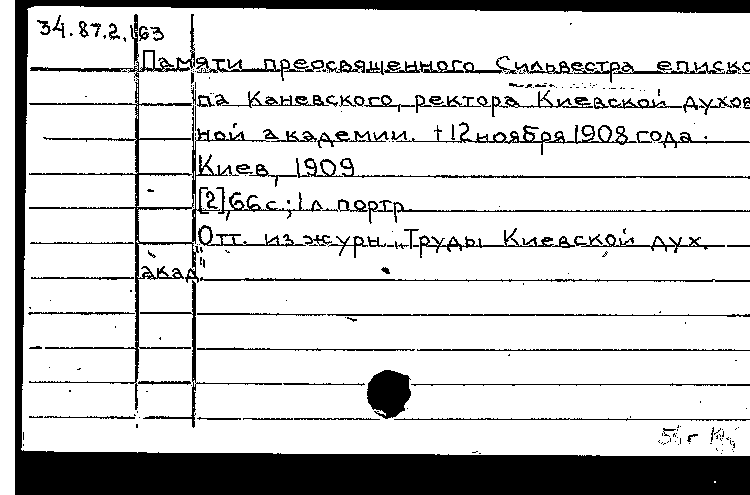 34.87.2.163
Памяти преосвященного Сильвестра еписко
па Каневского, ректора Киевской духов
ной академии. †12 ноября 1908 года.
Киев, 1909
[2],66с.; 1л. портр.
Отт. из журн. „Труды Киевской дух.
акад."